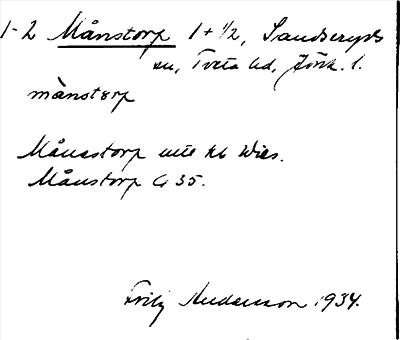 1-2 Månstorp 1+1/2, Sandseryds
sn, Tveta hd, Jönk. l.
mànstɷrp
Månastorp
Månstorp G 35.
Fritz Andersson 1934.